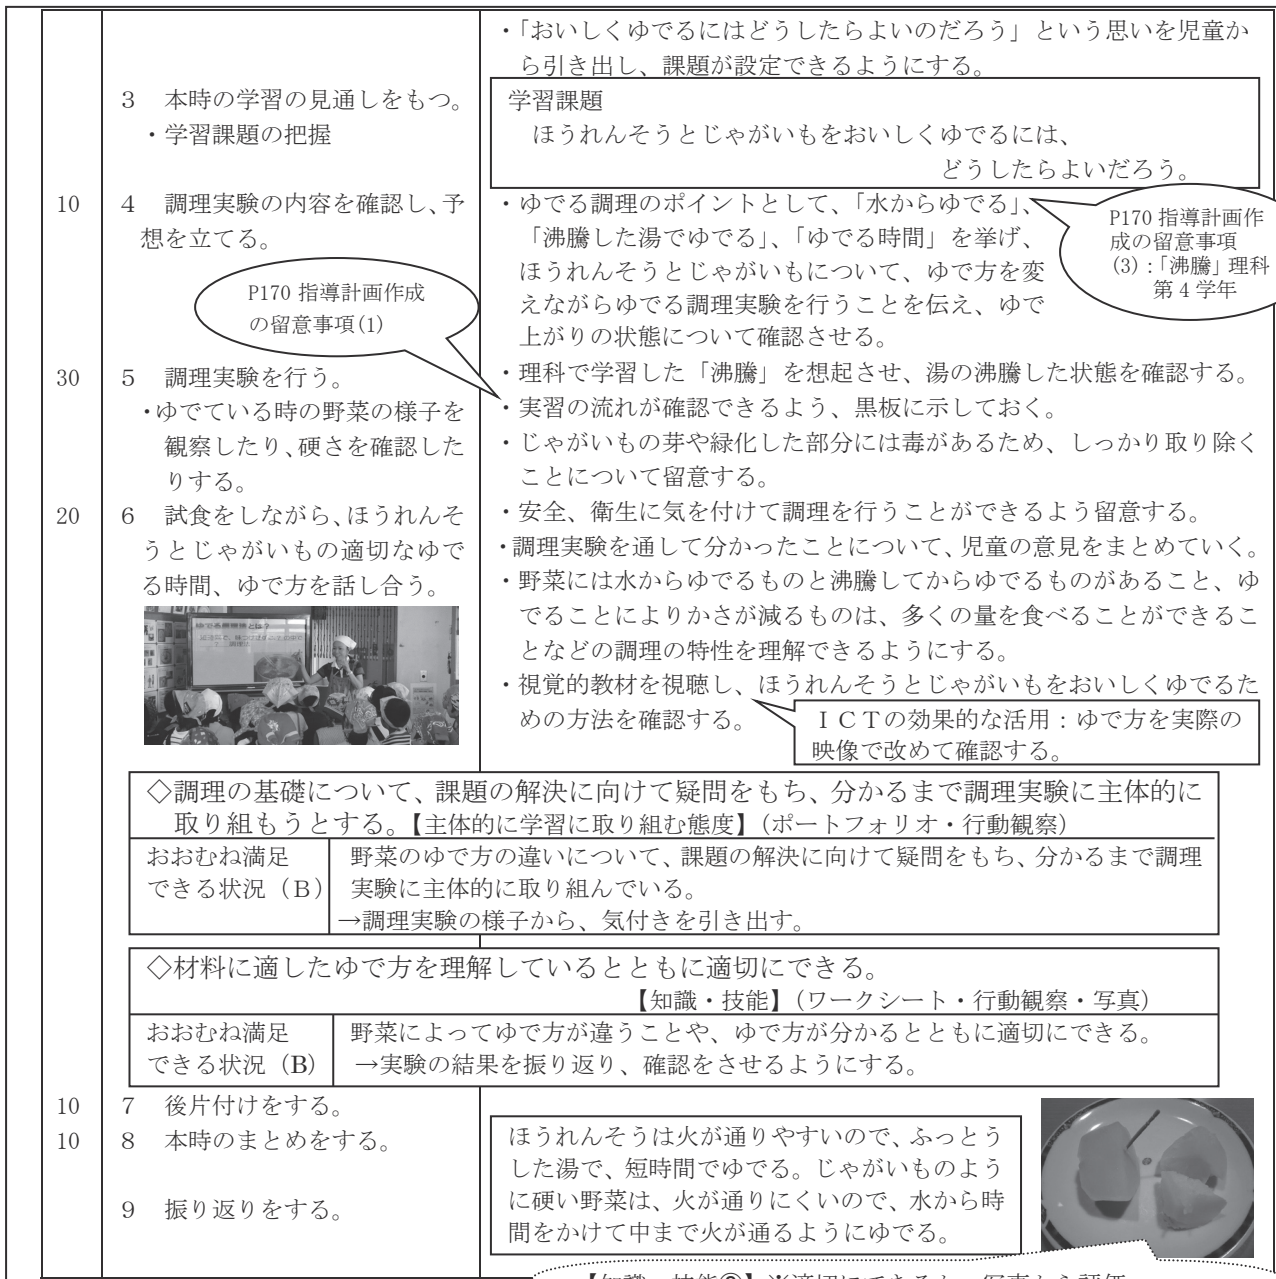 ・「おいしくゆでるにはどうしたらよいのだろう」という思いを児童か
ら引き出し、課題が設定できるようにする。
3　本時の学習の見通しをもつ。
・学習課題の把握
学習課題
ほうれんそうとじゃがいもをおいしくゆでるには、
どうしたらよいだろう。
10
4　調理実験の内容を確認し、予
想を立てる。
P170 指導計画作成
の留意事項(1)
・ゆでる調理のポイントとして、「水からゆでる」、
「沸騰した湯でゆでる」、「ゆでる時間」を挙げ、
ほうれんそうとじゃがいもについて、ゆで方を変
えながらゆでる調理実験を行うことを伝え、ゆで
上がりの状態について確認させる。
P170 指導計画作
成の留意事項
(3)：「沸騰」理科
第4学年
30
5　調理実験を行う。
・ゆでている時の野菜の様子を
観察したり、硬さを確認した
りする。
・理科で学習した「沸騰」を想起させ、湯の沸騰した状態を確認する。
・実習の流れが確認できるよう、黒板に示しておく。
・じゃがいもの芽や緑化した部分には毒があるため、しっかり取り除く
ことについて留意する。
20
6　試食をしながら、ほうれんそ
うとじゃがいもの適切なゆで
る時間、ゆで方を話し合う。
・安全、衛生に気を付けて調理を行うことができるよう留意する。
・調理実験を通して分かったことについて、児童の意見をまとめていく。
・野菜には水からゆでるものと沸騰してからゆでるものがあること、ゆ
でることによりかさが減るものは、多くの量を食べることができるこ
となどの調理の特性を理解できるようにする。
・視覚的教材を視聴し、ほうれんそうとじゃがいもをおいしくゆでるた
めの方法を確認する。
ＩＣＴの効果的な活用：ゆで方を実際の
映像で改めて確認する。
◇調理の基礎について、課題の解決に向けて疑問をもち、分かるまで調理実験に主体的に
取り組もうとする。【主体的に学習に取り組む態度】（ポートフォリオ・行動観察）
おおむね満足
できる状況（Ｂ）
野菜のゆで方の違いについて、課題の解決に向けて疑問をもち、分かるまで調理
実験に主体的に取り組んでいる。
→調理実験の様子から、気付きを引き出す。
◇材料に適したゆで方を理解しているとともに適切にできる。
【知識・技能】（ワークシート・行動観察・写真）
おおむね満足
できる状況（B）
野菜によってゆで方が違うことや、ゆで方が分かるとともに適切にできる。
→実験の結果を振り返り、確認をさせるようにする。
10
7　後片付けをする。
10
8　本時のまとめをする。
9　振り返りをする。
ほうれんそうは火が通りやすいので、ふっとう
した湯で、短時間でゆでる。じゃがいものよう
に硬い野菜は、火が通りにくいので、水から時
間をかけて中まで火が通るようにゆでる。